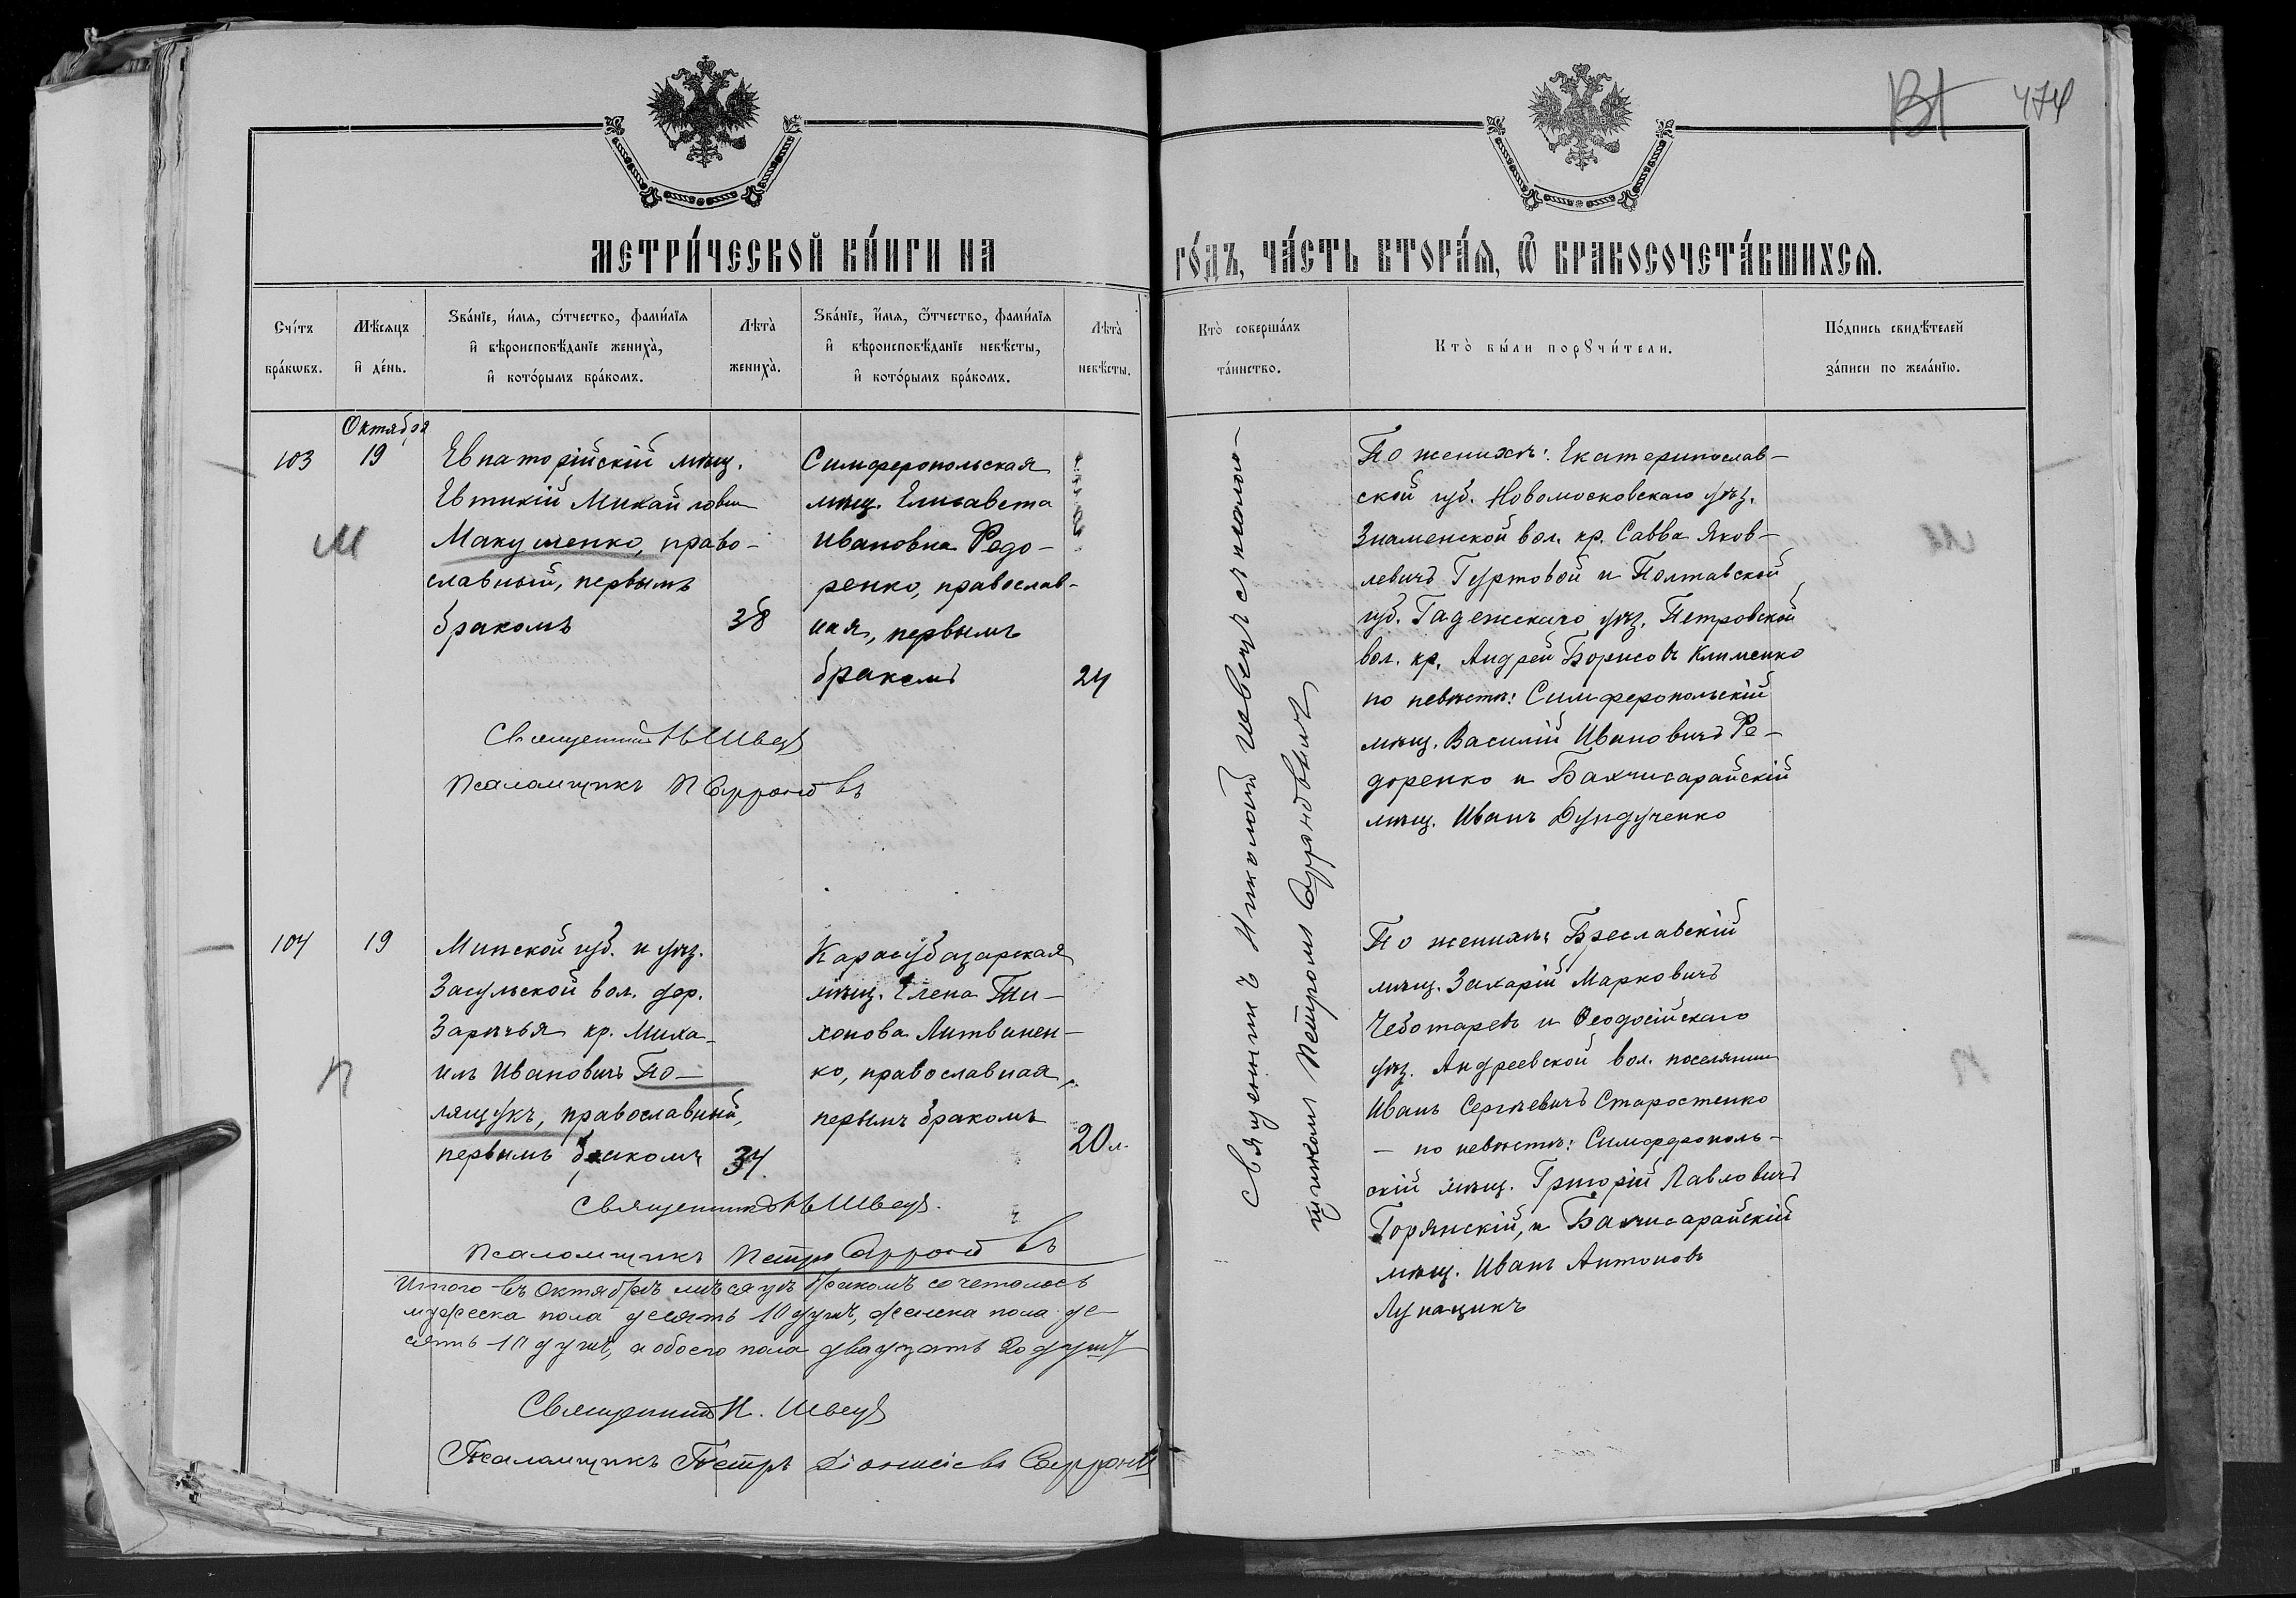 ВТ 474
МЕТРИ́ЧЕСКОЙ КНИ́ГИ НА
ГО́ДЪ, ЧА́СТЬ ВТОРА́Я, Ѿ БРАКОСОЧЕТА́ВШИХСЯ.
Сче́тъ бра́кωвъ.
Мѣ́сяцъ и҆ де́нь.
Ѕва́нїе, и҆́мя, ѻ҆́тчество, фами́лїя
и҆ вѣроисповѣ́данїе жениха̀,
и҆ кото́рымъ бра́комъ.
Лѣта̀ жениха̀.
Ѕва́нїе, и҆́мя, ѻ҆́тчество, фами́лїя
и҆ вѣроисповѣ́данїе невѣ́сты,
и҆ кото́рымъ бра́комъ.
Лѣта̀ невѣ́сты.
Кто̀ соверша́лъ
та́инство.
Кто̀ бы́ли порꙋчи́тели.
По́дпись свидѣ́телей
за́писи по жела́нїю.
Октября
103 19
Евпаторійскій мѣщ.
Евтихій Михайлович
Макушенко, право-
славный, первымъ
бракомъ 38
М
Симферопольская
мѣщ. Елисавета
Ивановна Редо-
ренко, православ-
ная, первымъ
бракомъ 24
Священник Н Швец
Псаломщикъ П
Священникъ Николай Швецъ съ псалом-
щикомъ Петромъ
По женихѣ: Екатеринослав-
ской губ. Новомосковскаго уѣз.
Знаменской вол. кр. Савва Яков-
левичъ Гуртовой и Полтавской
губ. Гадежскаго уѣз. Петровской
вол. кр. Андрей Борисовъ Клименко
по невѣстѣ: Симферопольскій
мѣщ. Василій Ивановичъ Ре-
доренко и Бахчисарайскій
мѣщ. Иванъ Дундученко
104 19
Минской губ. и уѣз.
Засульской вол. дер.
Зарѣчья кр. Миха-
илъ Ивановичъ По-
лящукъ, православный,
первымъ бракомъ 34
П
Карасубазарская
мѣщ. Елена Ти-
хонова Литвинен-
ко, православная,
первымъ бракомъ
20 л.
По женихѣ: Бреславскій
мѣщ. Захарій Марковичъ
Чеботаревъ и Ѳеодосійскаго
уѣз. Андреевской вол. поселянин
Иванъ Сергѣевичъ Старостенко
— по невѣстѣ: Симферополь-
скій мѣщ. Григорій Павловичъ
Горянскій, и Бахчисарайскій
мѣщ. Иванъ Антоновъ
Лупащикъ
Священникъ Н Швецъ.
Псаломщикъ Петръ
Итого въ Октябрѣ мѣсяцѣ бракомъ сочеталось
мужеска пола десять 10 душъ, женска пола де-
сять 10 душъ, а обоего пола двадцать 20 душъ
Священник Н. Швецъ
Псаломщикъ Петръ Діонисіевъ